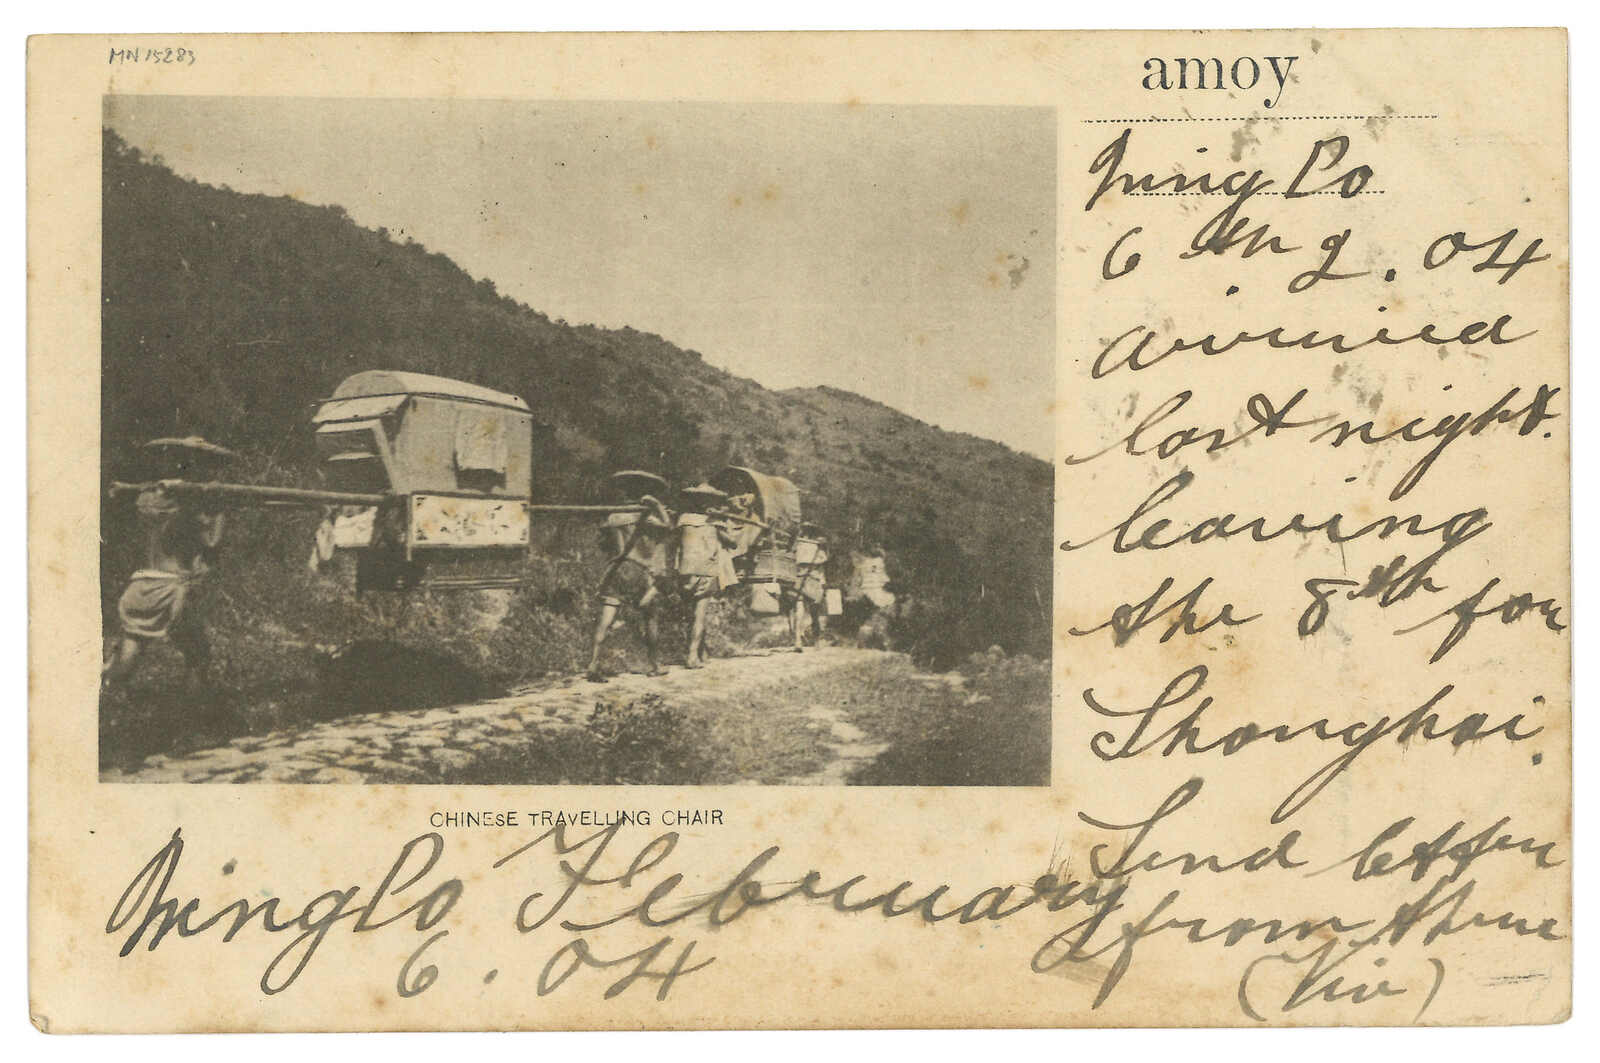 MN 15283
amoy
Ning Po
6th 2. 04
arrived
last night.
leaving
the 8th for
Shanghai.
Send letter
from there
(Viv)
CHINESE TRAVELLING CHAIR
NingPo February
6. 04